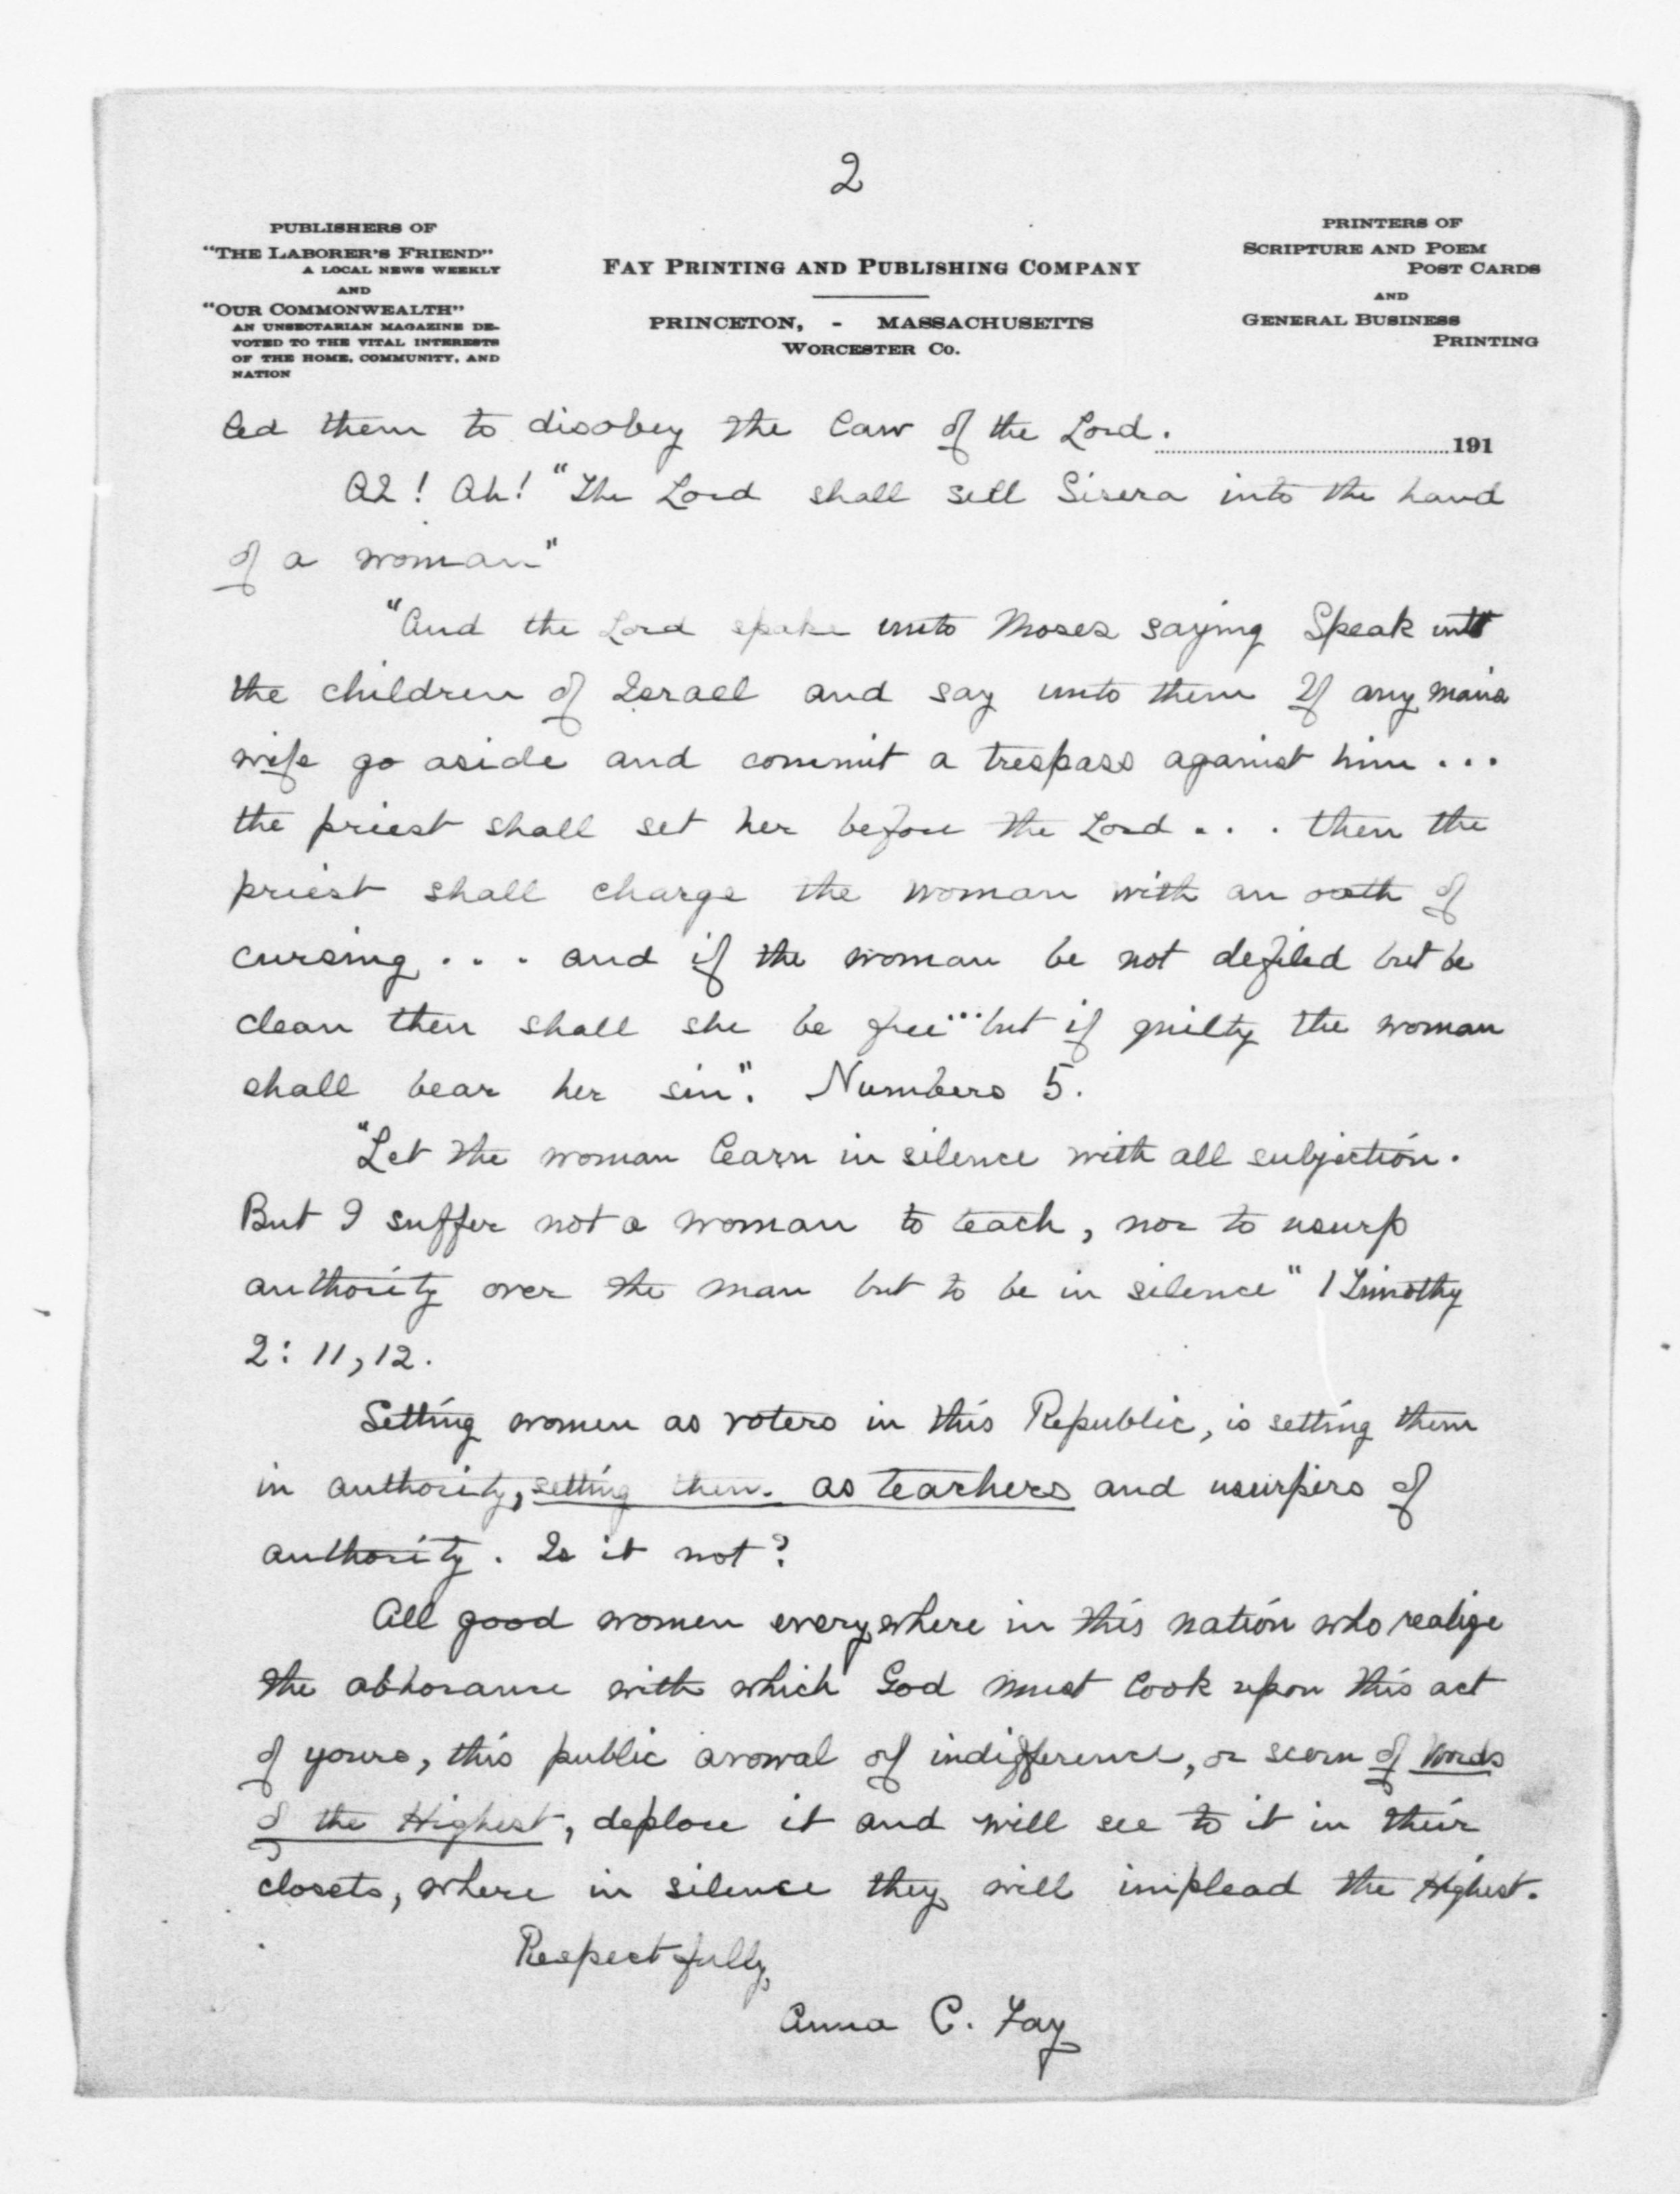 2
PUBLISHERS OF
"THE LABORER'S FRIEND"
A LOCAL NEWS WEEKLY
AND
"OUR COMMONWEALTH"
AN UNSECTARIAN MAGAZINE DE-
VOTED TO THE VITAL INTERESTS
OF THE HOME, COMMUNITY, AND
NATION
FAY PRINTING AND PUBLISHING COMPANY
PRINCETON, - MASSACHUSETTS
WORCESTER CO.
PRINTERS OF
SCRIPTURE AND POEM
POST CARDS
AND
GENERAL BUSINESS
PRINTING
led them to disobey the law of the Lord.
191
Ah! Ah! "The Lord shall sell Sisera into the hand
of a woman"
"And the Lord spake unto Moses saying Speak unto
the children of Israel and say unto them If any mans
wife go aside and commit a trespass against him ...
the priest shall set her before the Lord ... then the
priest shall charge the woman with an oath of
cursing ... and if the woman be not defiled but be
clean then shall she be free ... but if guilty the woman
shall bear her sin". Numbers 5.
"Let the woman learn in silence with all subjection.
But I suffer not a woman to teach, nor to usurp
authority over the man but to be in silence" 1 Timothy
2: 11, 12.
Setting women as voters in this Republic, is setting them
in authority, setting them as teachers and usurpers of
authority. Is it not?
All good women everywhere in this nation who realize
the abhorance with which God must look upon this act
of yours, this public avowal of indifference, or scorn of Words
of the Highest, deplore it and will see to it in their
closets, where in silence they will implead the Highest.
Respectfully,
Anna C. Fay